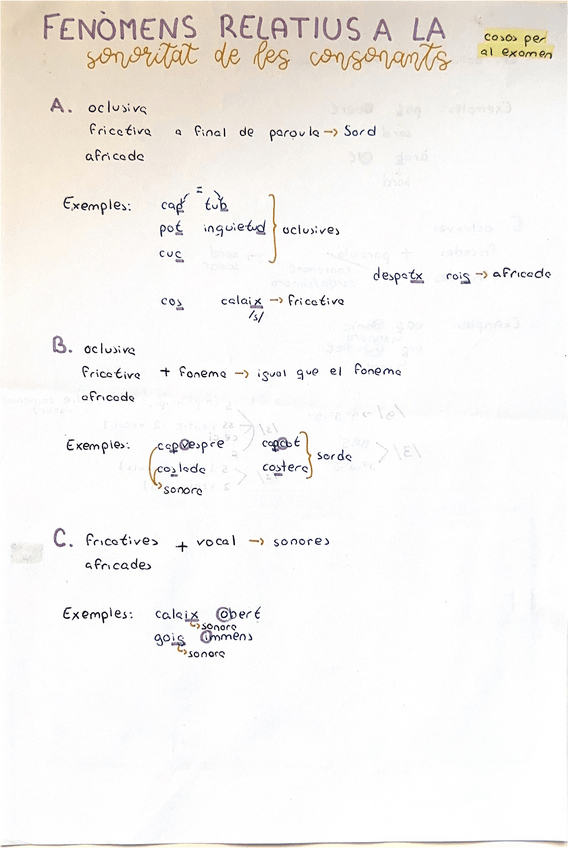 FENÒMENS RELATIUS A LA
sonoritat de les consonants
cosos per
al examen
A. oclusiva
fricativa a final de paraula → Sord
africada
=
Exemples: cap tub
pot inquietud oclusives
cuc
despatx roig → africada
cos calaix → fricativa
/s/
B. oclusiva
fricativa + fonema → igual que el fonema
africada
Exemples: capvespre capcot
coslada costera sorda
sonora
C. fricatives + vocal → sonores
africades
Exemples: calaix obert
sonora
goig immens
sonora